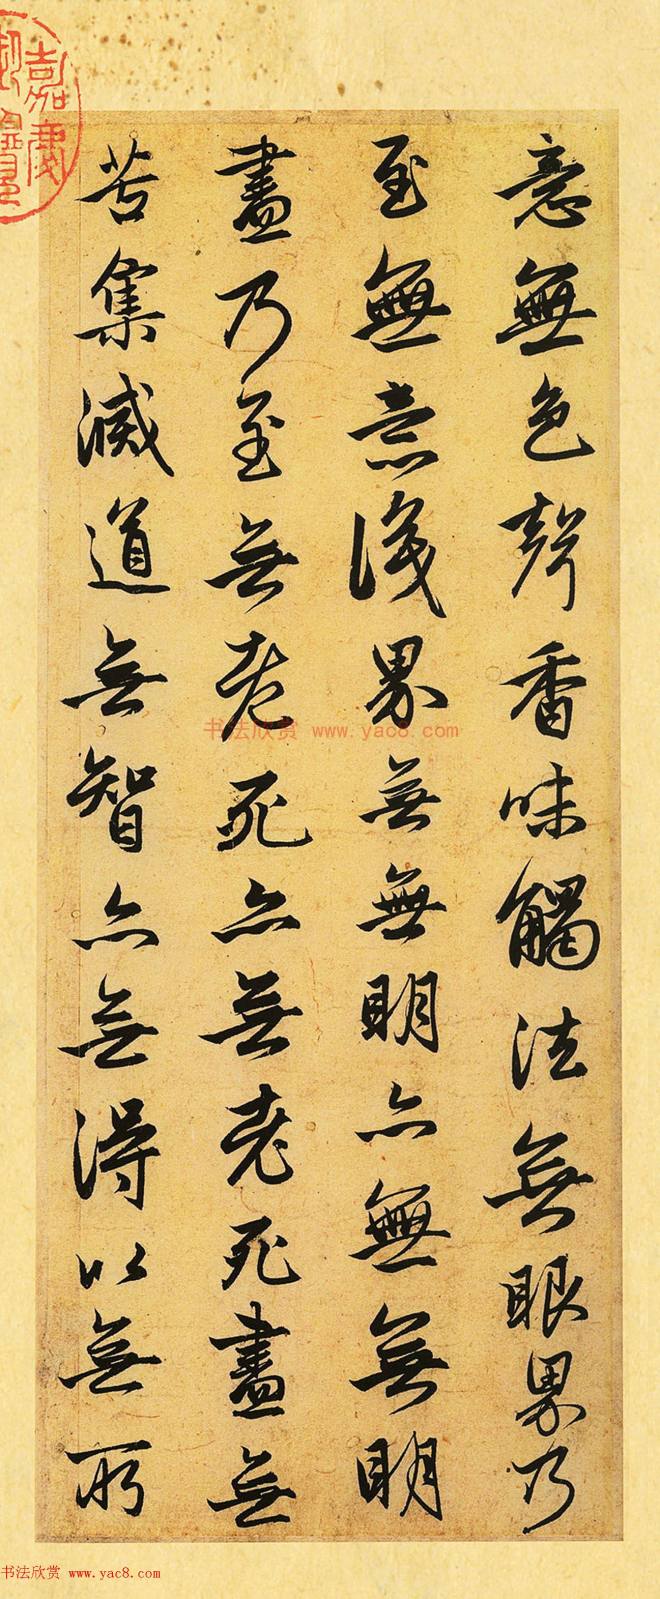 意無色聲香味觸法無眼界乃
至無意識界無無明亦無無明
盡乃至無老死亦無老死盡無
苦集滅道無智亦無得以無所
嘉慶御覽之寶
书法欣赏 www.yac8.com
书法欣赏 www.yac8.com